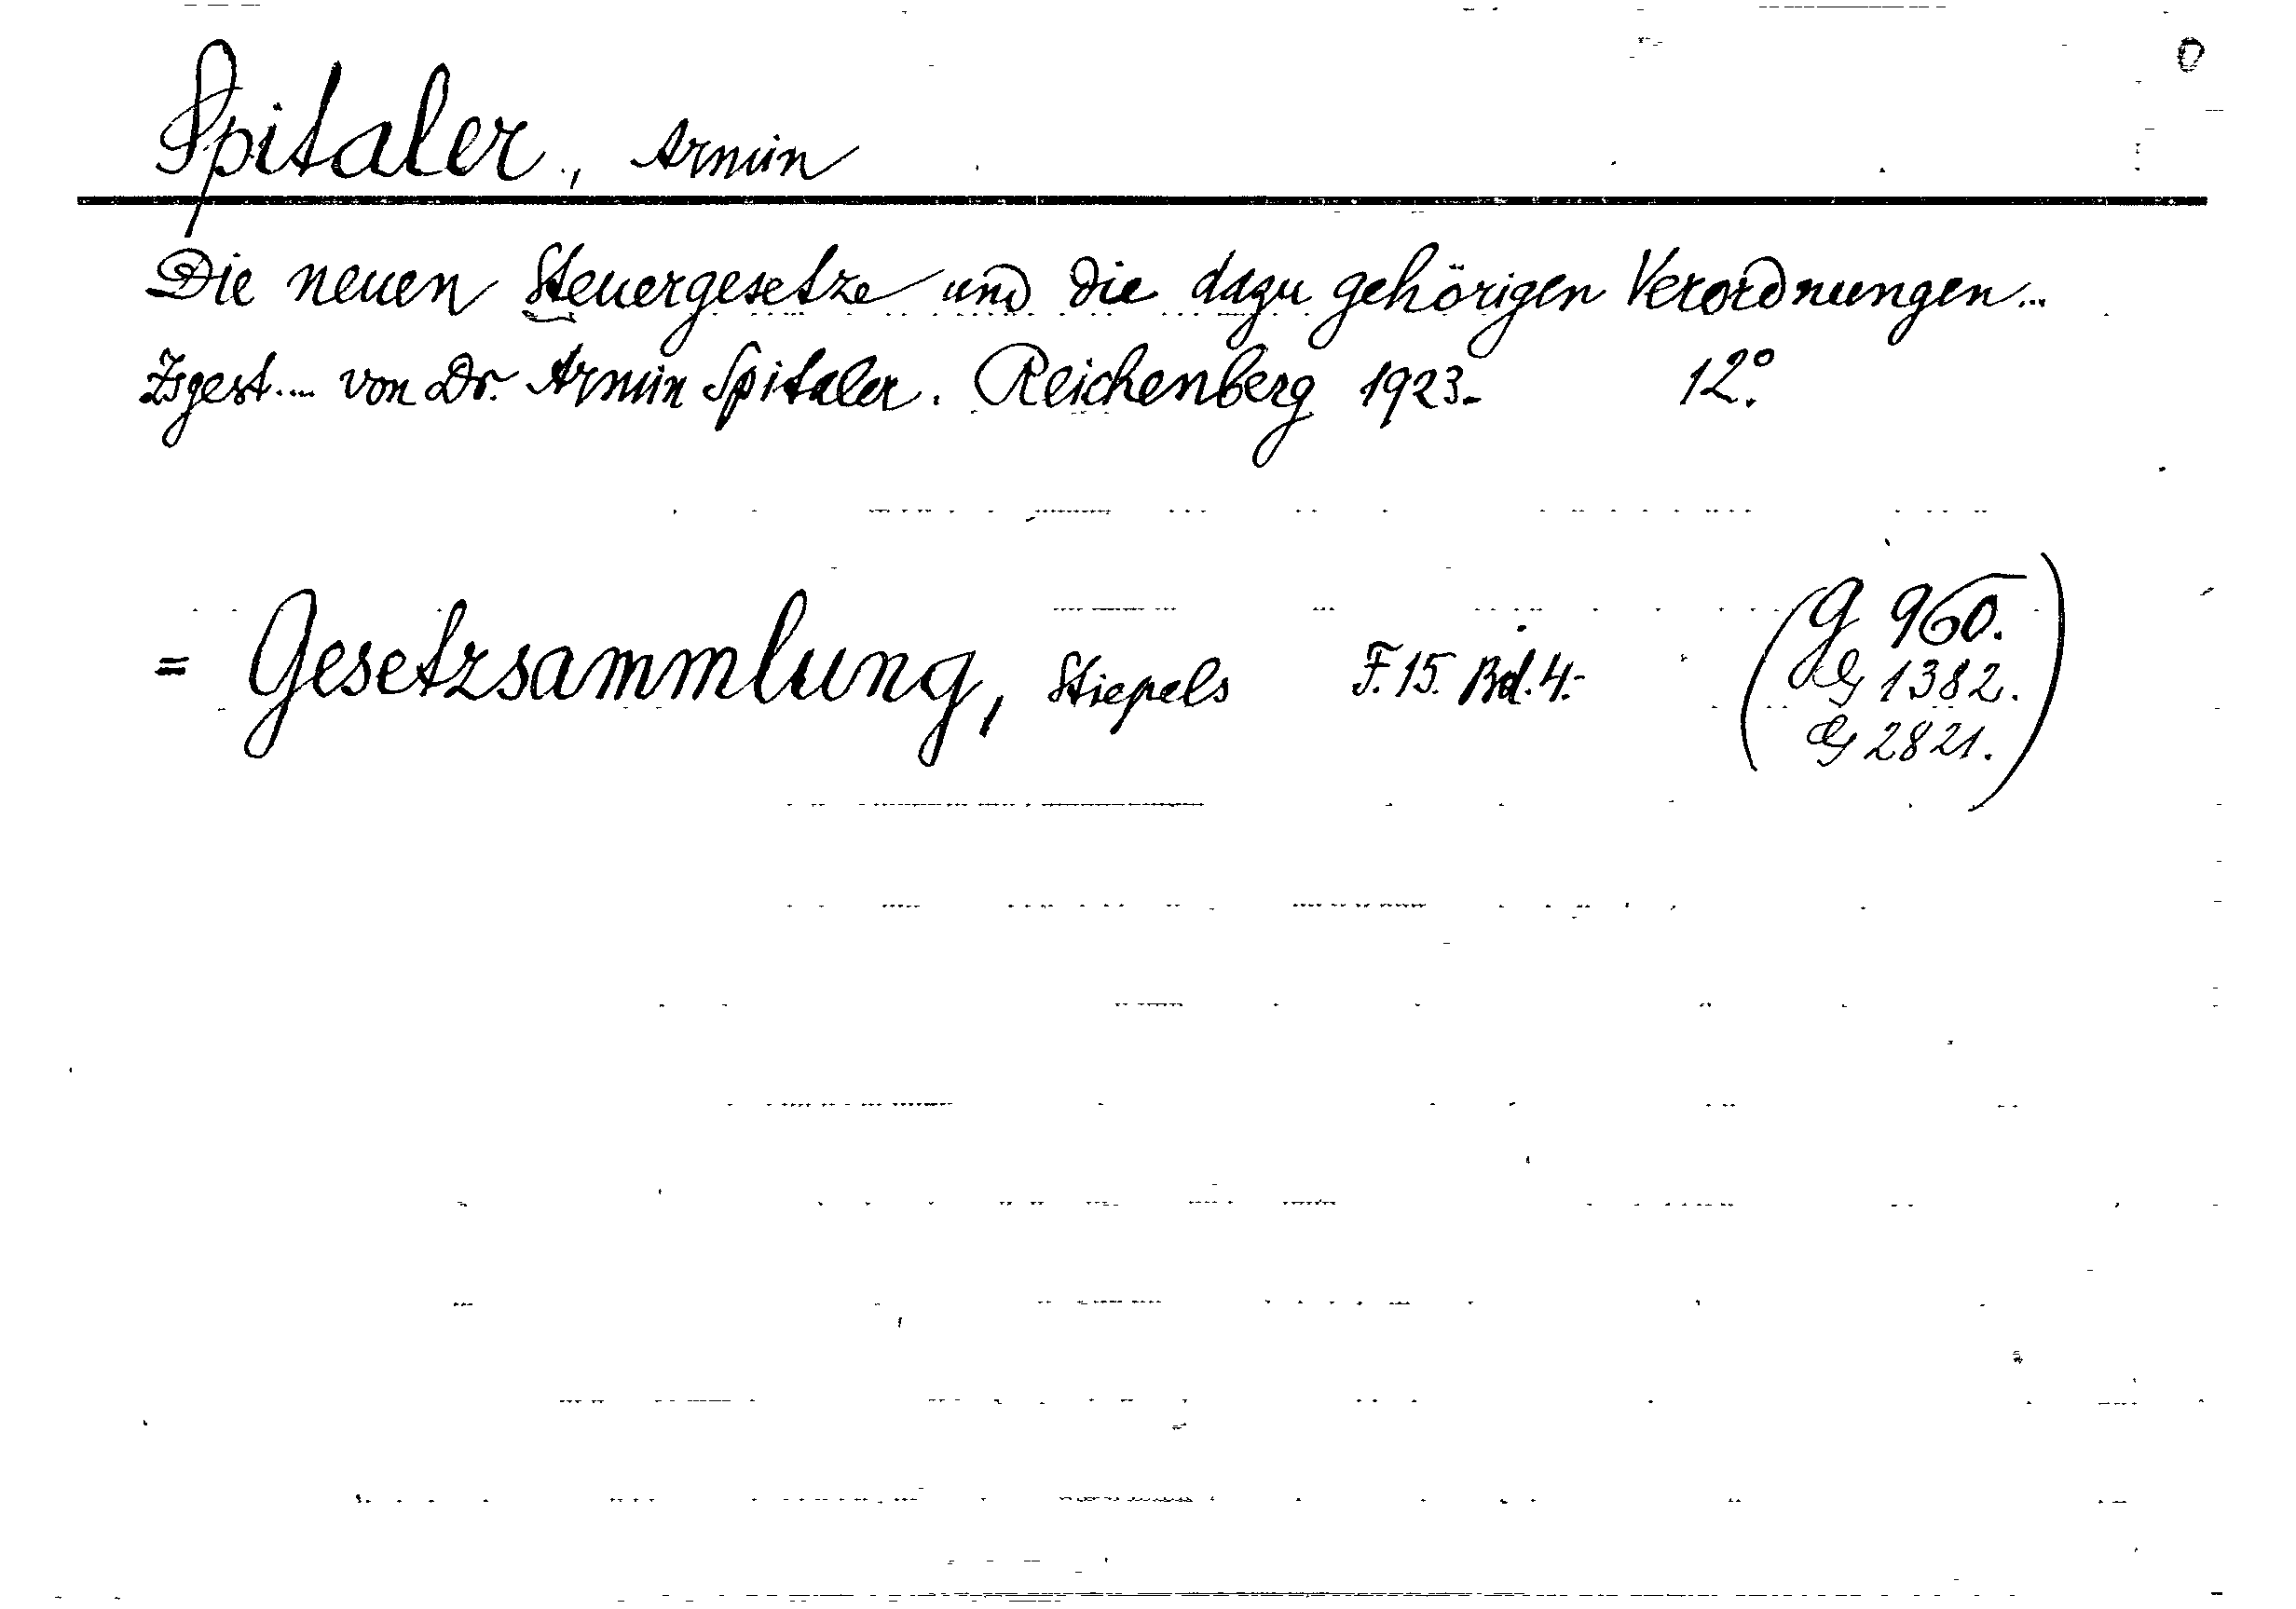 Spitaler, Armin
Die neuen Steuergesetze und die dazu gehörigen Verordnungen...
Zsgest.... von Dr. Armin Spitaler. Reichenberg 1923. 12°.
= Gesetzsammlung, Stiepels F. 15. Bd. 4.- (G 960.
1382.
2821.)